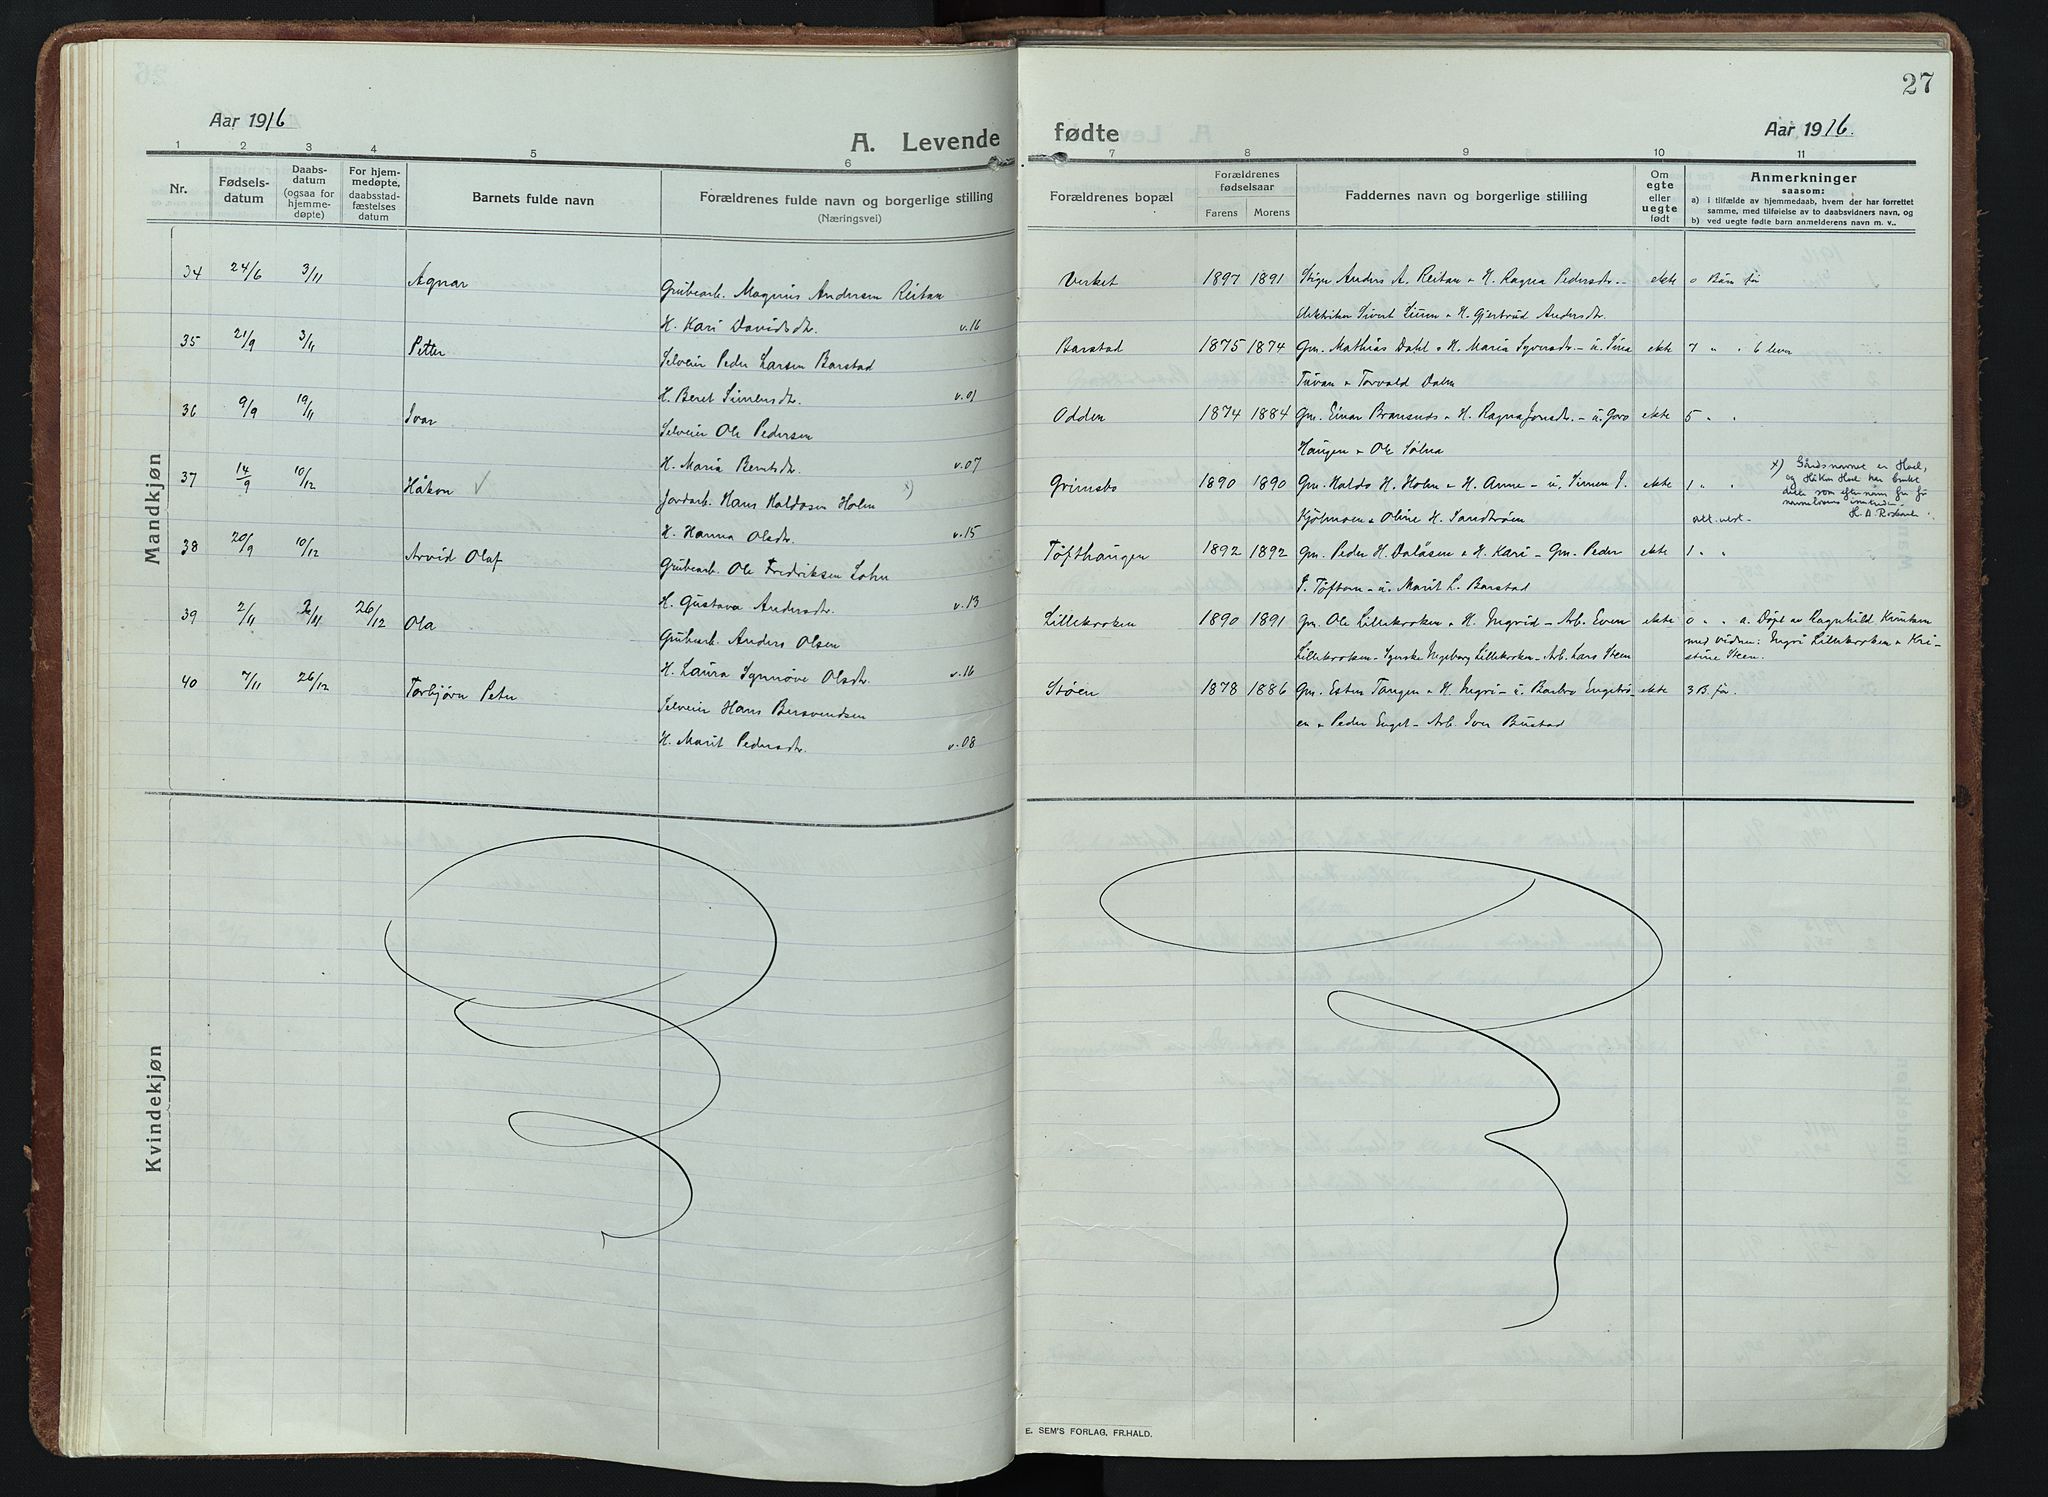 27
Aar 1916
A. Levende
1 2 3 4 5 6
Nr.
Fødsels-
datum
Daabs-
datum
(ogsaa for
hjemme-
døpte)
For hjem-
medøpte,
daabsstad-
fæstelses
datum
Barnets fulde navn
Forældrenes fulde navn og borgerlige stilling
(Næringsvei)
Mandkjøn
34 24/6 3/11 Agnar Grubearb. Magnus Andersen Reitan
H. Kari Davidsdtr. v.16
35 21/9 3/11 Petter Selveier Peder Larsen Barstad
H. Beret Simensdtr. v.01
36 9/9 19/11 Ivar Selveier Ole Pedersen
H. Maria Berntsdtr. v.07
37 14/9 10/12 Håkon √ Jordarb. Hans Haldosen Holm x)
H. Hanna Olsdtr. v.15
38 20/9 10/12 Arvid Olaf Grubearb. Ole Fredriksen Lohn
H. Gustava Andersdtr. v.13
39 2/11 2/11 26/12 Ola Grubearb. Anders Olsen
H. Laura Synnøve Olsdtr. v.16
40 7/11 26/12 Torbjørn Peter Selveier Hans Bersvendsen
H. Marit Pedersdtr. v.08
Kvindekjøn
fødte
Aar 1916.
7 8 9 10 11
Forældrenes bopæl
Forældrenes
fødselsaar
Farens Morens
Faddernes navn og borgerlige stilling
Om
egte
eller
uegte
født
Anmerkninger
saasom:
a) i tilfælde av hjemmedaab, hvem der har forrettet
samme, med tilføielse av to daabsvidners navn, og
b) ved uegte fødte barn anmelderens navn m. v..
Verket 1897 1891 Stiger Anders A. Reitan + H. Ragna Pedersdtr. - ekte 0 Barn før
Elektriker Sivert Lium + H. Gjertrud Andersdtr.
Barstad 1875 1874 Gm. Mathias Dahl + H. Maria Syversdtr. - u. Sina ekte 7 " " 6 lever
Tuvan + Torvald Dalen
Odden 1874 1884 Gm. Einar Bransnes + H. Ragna Jonsdtr. - u. Goro ekte 5 " "
Haugen + Ole Sølna
Grimsbo 1890 1890 Gm. Haldo H. Holm + H. Anne - u. Simen J. ekte 1 " "
Kjølmoen + Oline H. Sandstrøm
x) Gårdsnavnet er Hoel,
og Håkon Hoel har brukt
dette som efternavn fra før
navnelovens
Att. utst.
Tøfthaugen 1892 1892 Gm. Peder H. Dalåsen + H. Kari - Gm. Peder ekte 1 " "
J. Tøften - u. Marit L. Barstad
Lillekroken 1890 1891 Gm. Ole Lillekroken + H. Ingrid - Arb. Even ekte 0 " " a. Døpt av Ragnhild Kroken
Lillekroken - Syerske Ingeborg Lillekroken - Arb. Lars Steen med vidner: Ingri Lillekroken + Kri-
stine Steen.
Støen 1878 1886 Gm. Esten Tangen + H. Ingri - u. Barbro Engebrå- ekte 3 B. før.
en + Peder Enget - Arb. Iver Bustad
E. SEM'S FORLAG, FR.HALD.